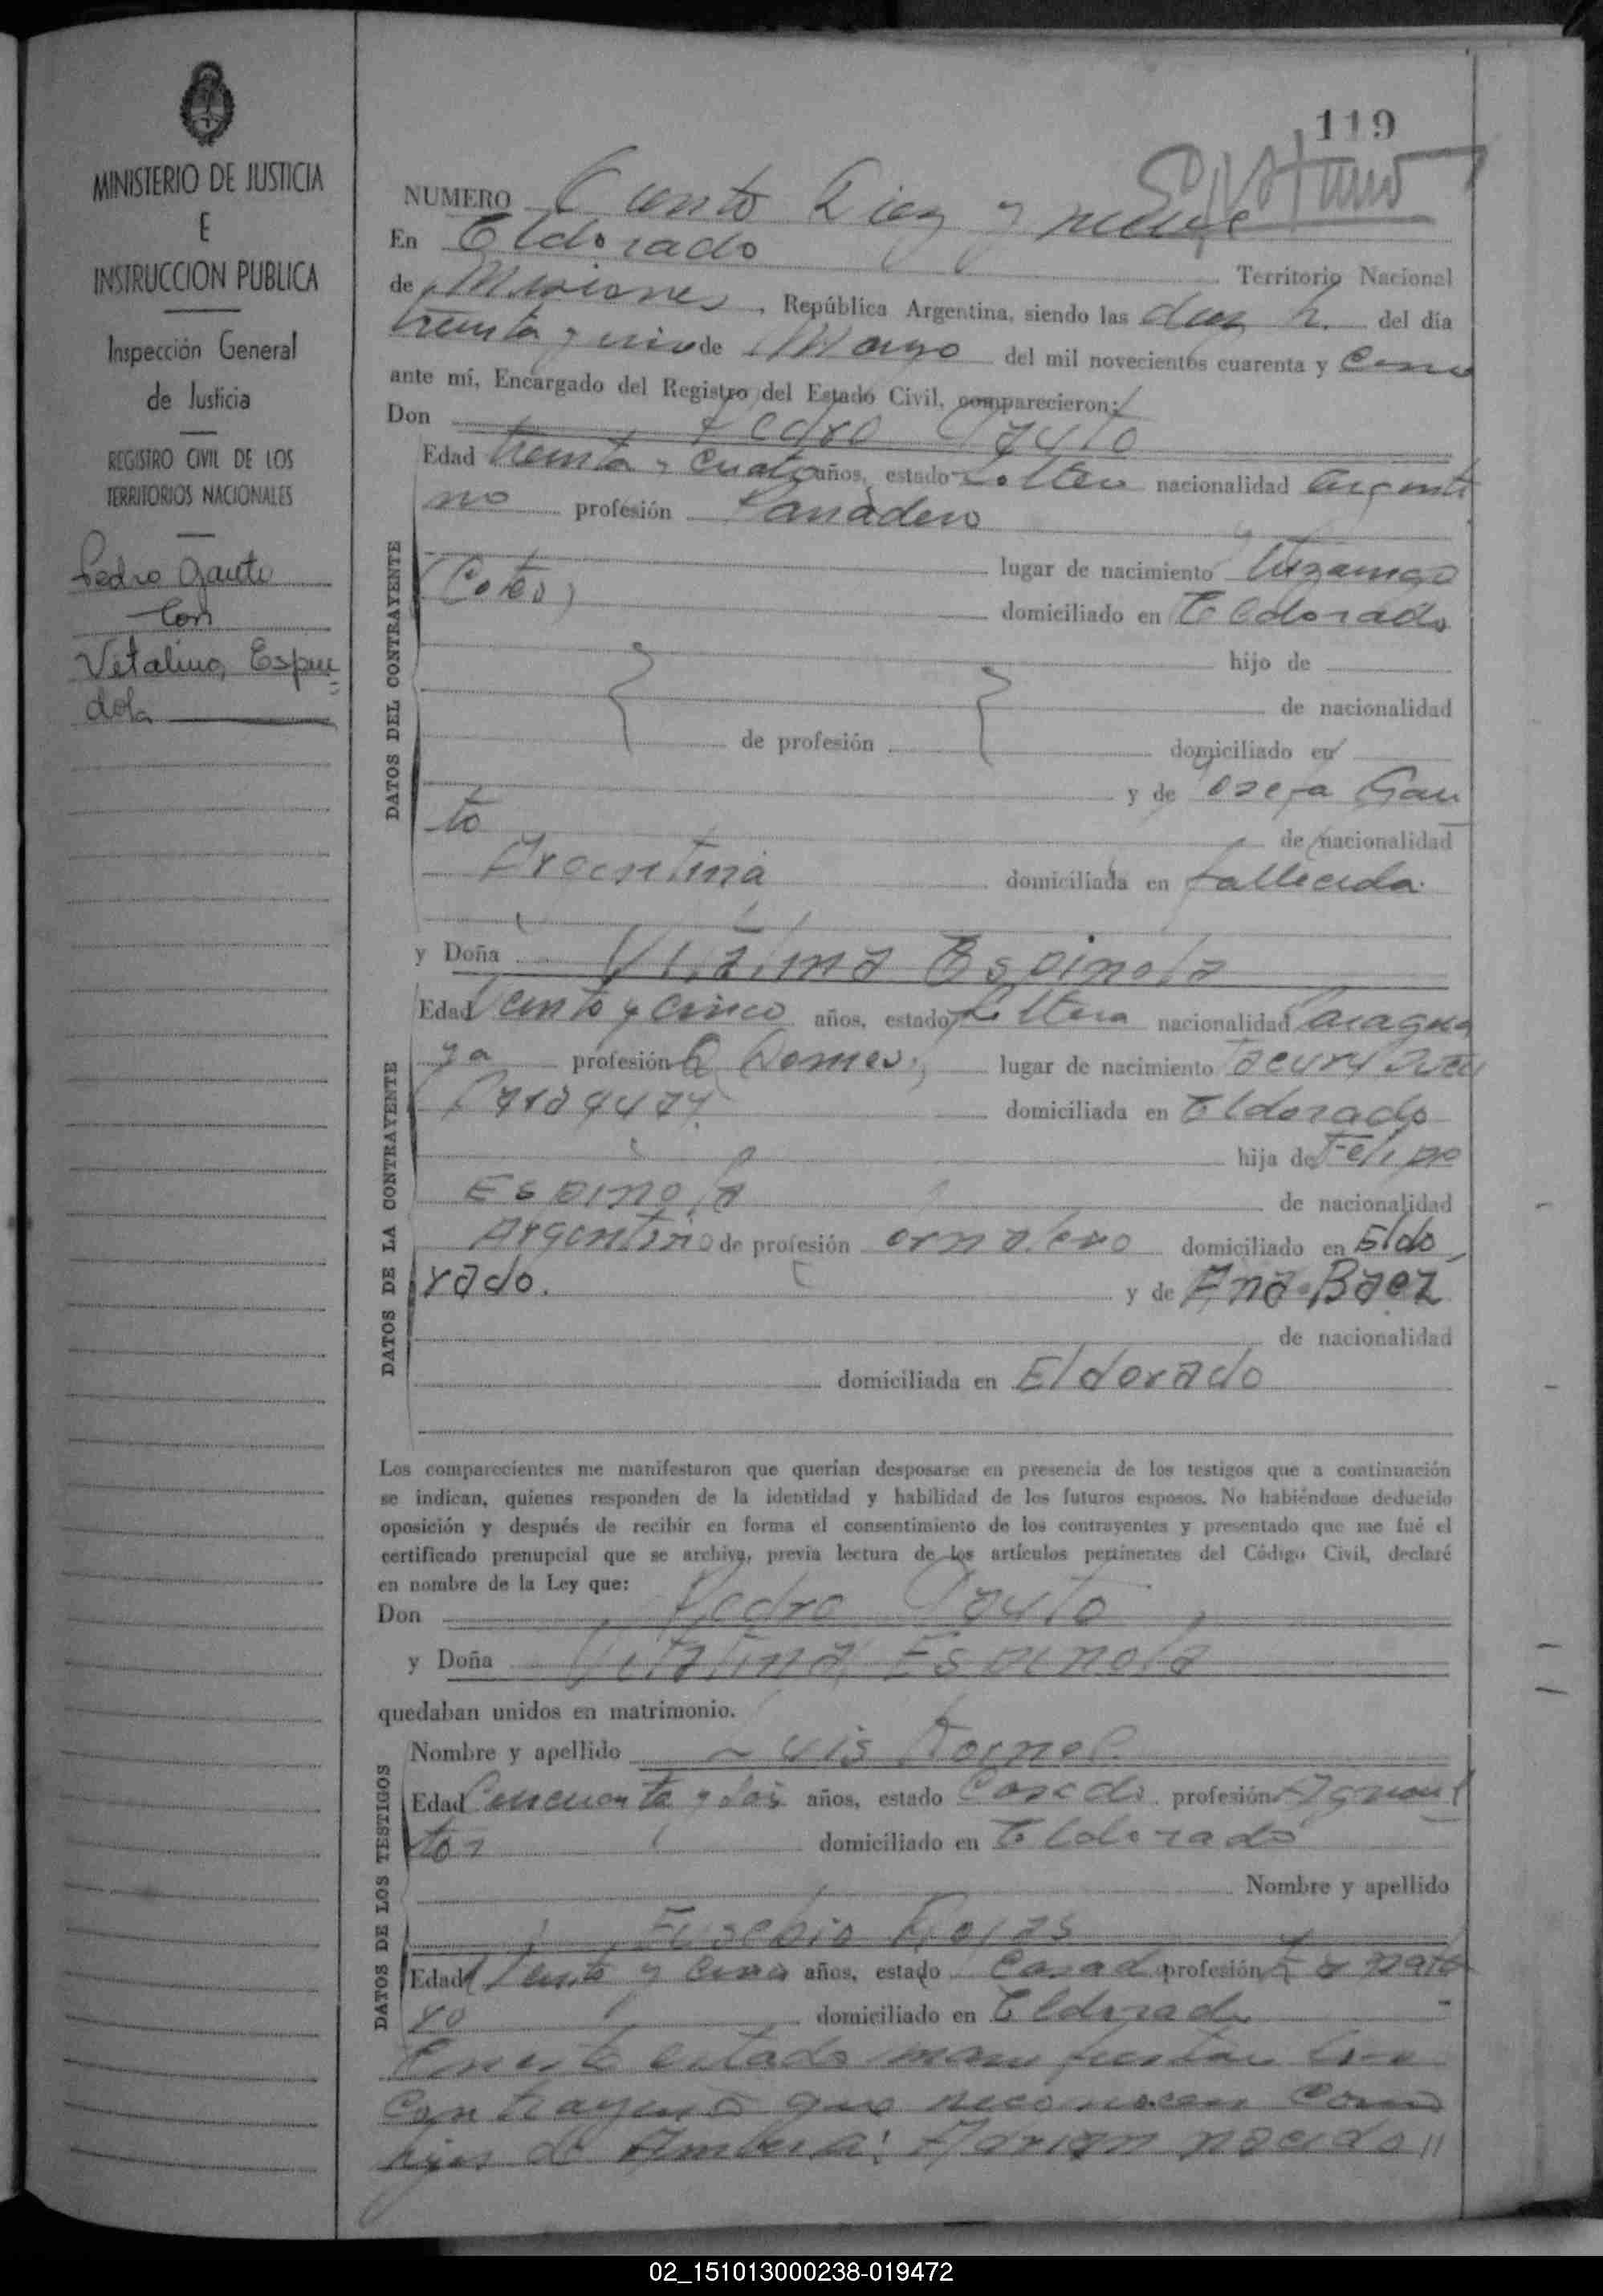 MINISTERIO DE JUSTICIA
E
INSTRUCCION PUBLICA
Inspección General
de Justicia
REGISTRO CIVIL DE LOS
TERRITORIOS NACIONALES
Pedro Gauto
con
Vitalina Espin
dola
119
NUMERO Ciento diez y nueve
En Eldorado Territorio Nacional
de Misiones, República Argentina, siendo las diez h. del día
treinta y uno de Mayo del mil novecientos cuarenta y cinco
ante mí, Encargado del Registro del Estado Civil, comparecieron:
Don Pedro Gauto
DATOS DEL CONTRAYENTE
Edad treinta y cuatro años, estado soltero nacionalidad argenti
no profesión Panadero
lugar de nacimiento Ituzaingo
(Ctes) domiciliado en Eldorado
hijo de
de nacionalidad
de profesión domiciliado en
y de Josefa Gau
to de nacionalidad
Argentina domiciliada en fallecida
y Doña Vitalina Espinola
DATOS DE LA CONTRAYENTE
Edad Veinte y cinco años, estado soltera nacionalidad Paragua
ya profesión Q. Domes. lugar de nacimiento
Paraguay domiciliada en Eldorado
hija de Felipe
Espinola de nacionalidad
Argentino de profesión Jornalero domiciliado en Eldo
rado. y de Ana Baez
de nacionalidad
domiciliada en Eldorado
Los comparecientes me manifestaron que querían desposarse en presencia de los testigos que a continuación
se indican, quienes responden de la identidad y habilidad de los futuros esposos. No habiéndose deducido
oposición y después de recibir en forma el consentimiento de los contrayentes y presentado que me fué el
certificado prenupcial que se archiva, previa lectura de los artículos pertinentes del Código Civil, declaré
en nombre de la Ley que:
Don Pedro Gauto
y Doña Vitalina Espinola
quedaban unidos en matrimonio.
DATOS DE LOS TESTIGOS
Nombre y apellido Luis Kornel
Edad Cincuenta y dos años, estado Casado profesión Agricul
tor domiciliado en Eldorado
Nombre y apellido
Eusebio Rojas
Edad Veinte y cinco años, estado Casado profesión
ro domiciliado en Eldorado
En este estado manifiestan los
contrayentes que reconocen como
hijos de Ambos a: Adrian nacido //
02_151013000238-019472